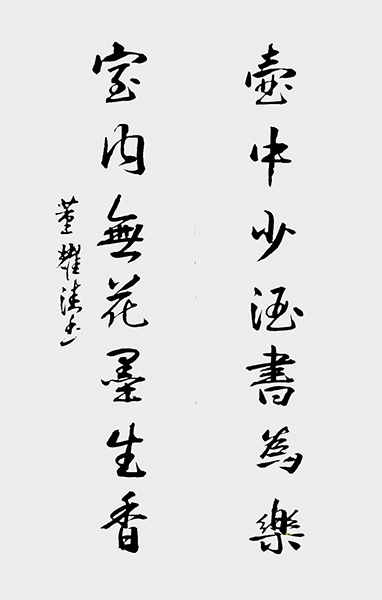 壺中少酒書為樂
室内無花墨生香
董耀